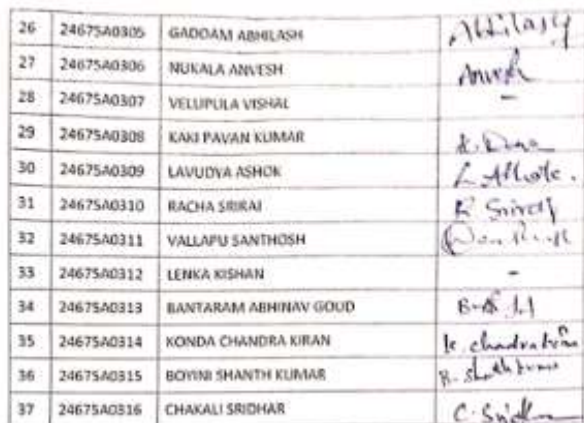 26 24675A0305 GADDAM ABHILASH Abhilash
27 24675A0306 NUKALA ANVESH Anvesh
28 24675A0307 VELUPULA VISHAL -
29 24675A0308 KAKI PAVAN KUMAR
30 24675A0309 LAVUDYA ASHOK L. Ashok.
31 24675A0310 RACHA SRIRAJ R Sriraj
32 24675A0311 VALLAPU SANTHOSH
33 24675A0312 LENKA KISHAN -
34 24675A0313 BANTARAM ABHINAV GOUD
35 24675A0314 KONDA CHANDRA KIRAN K. chandra kiran
36 24675A0315 BOYINI SHANTH KUMAR B. Shanth kumar
37 24675A0316 CHAKALI SRIDHAR C. Sridhar